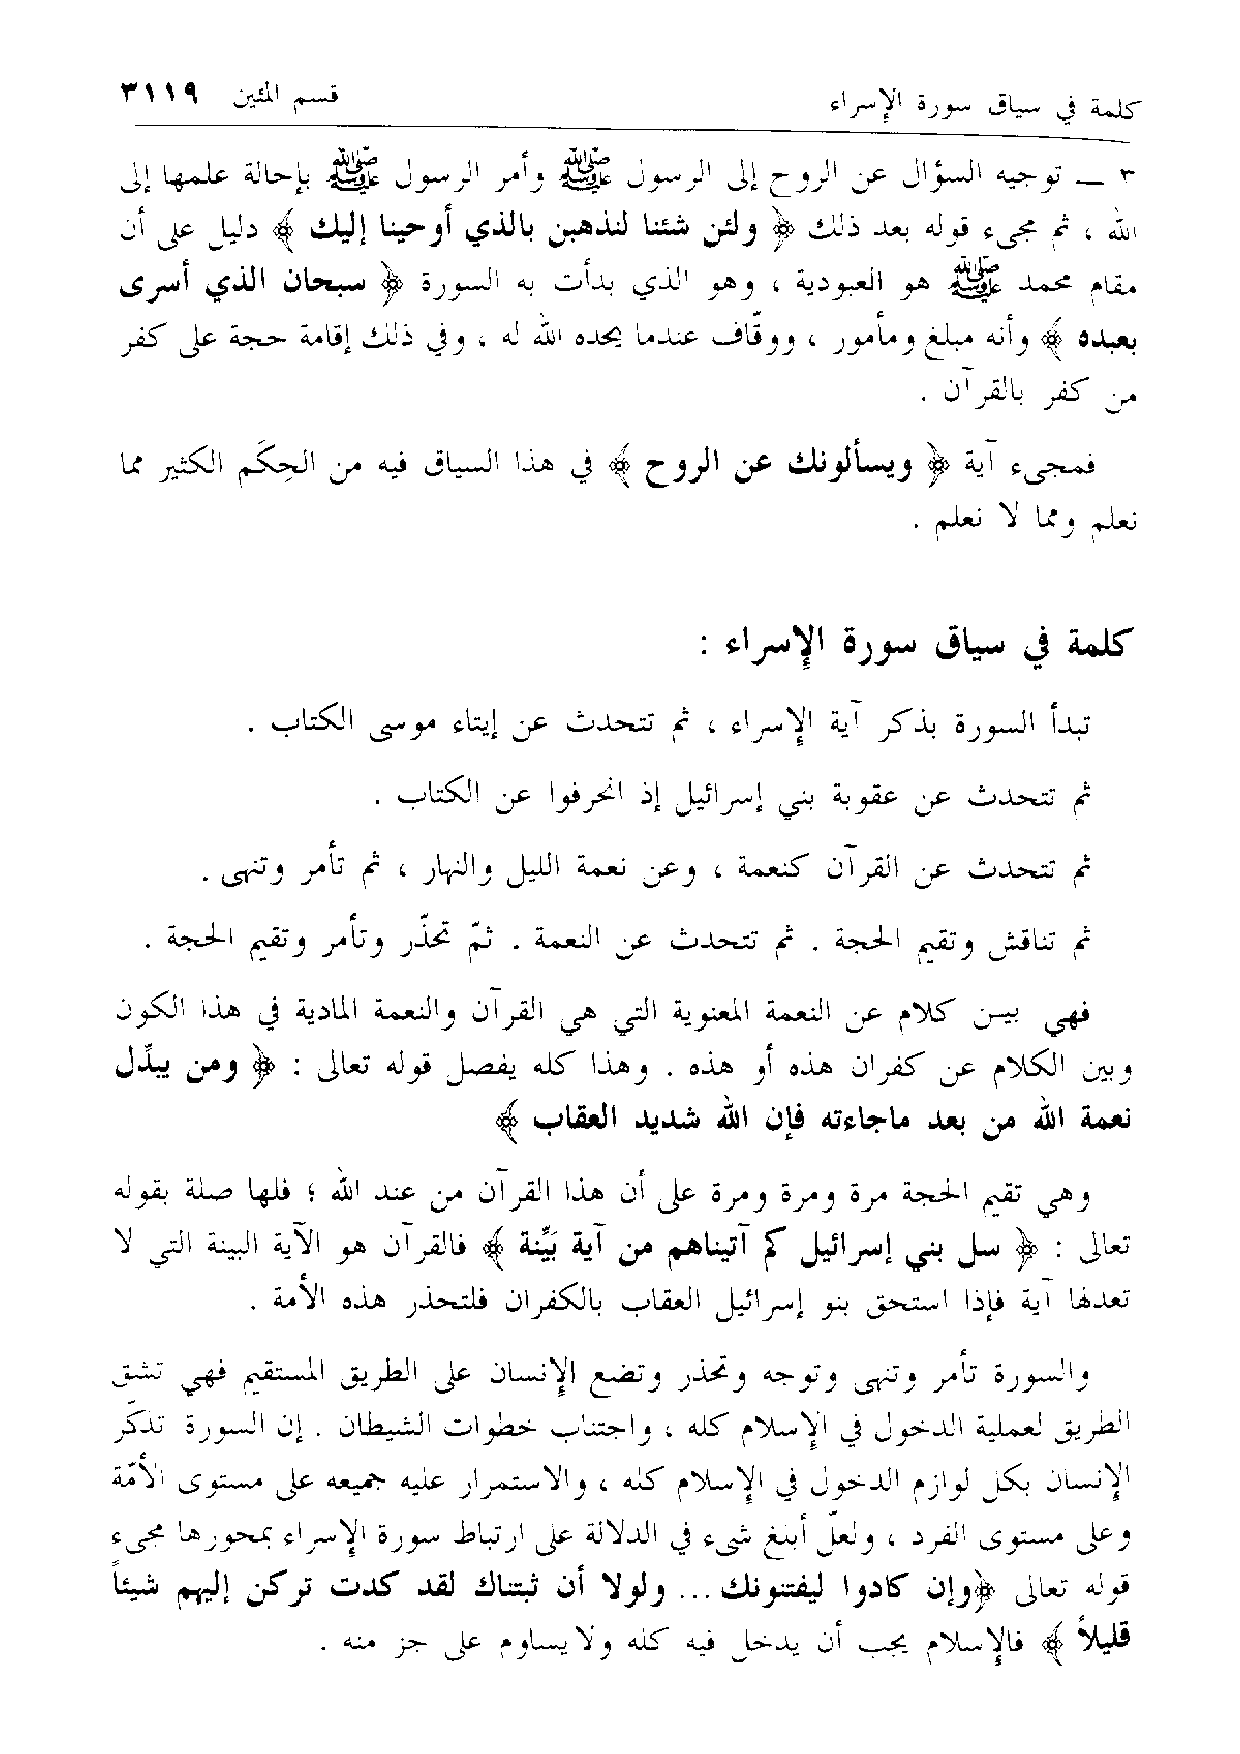 كلمة في سياق سورة الإسراء قسم المئين ٣١١٩
٣ ــ توجيه السؤال عن الروح إلى الرسول ﷺ وأمر الرسول ﷺ بإحالة علمها إلى
الله ، ثم مجىء قوله بعد ذلك ﴿ ولئن شئنا لنذهبن بالذي أوحينا إليك ﴾ دليل على أن
مقام محمد ﷺ هو العبودية ، وهو الذي بدأت به السورة ﴿ سبحان الذي أسرى
بعبده ﴾ وأنه مبلغ ومأمور ، ووقّاف عندما يحده الله له ، وفي ذلك إقامة حجة على كفر
من كفر بالقرآن .
فمجىء آية ﴿ ويسألونك عن الروح ﴾ في هذا السياق فيه من الحِكَم الكثير مما
نعلم ومما لا نعلم .
كلمة في سياق سورة الإسراء :
تبدأ السورة بذكر آية الإسراء ، ثم تتحدث عن إيتاء موسى الكتاب .
ثم تتحدث عن عقوبة بني إسرائيل إذ انحرفوا عن الكتاب .
ثم تتحدث عن القرآن كنعمة ، وعن نعمة الليل والنهار ، ثم تأمر وتنهى .
ثم تناقش وتقيم الحجة . ثم تتحدث عن النعمة . ثمّ تحذّر وتأمر وتقيم الحجة .
فهي بين كلام عن النعمة المعنوية التي هي القرآن والنعمة المادية في هذا الكون
وبين الكلام عن كفران هذه أو هذه . وهذا كله يفصل قوله تعالى : ﴿ ومن يبدّل
نعمة الله من بعد ماجاءته فإن الله شديد العقاب ﴾
وهي تقيم الحجة مرة ومرة ومرة على أن هذا القرآن من عند الله ؛ فلها صلة بقوله
تعالى : ﴿ سل بني إسرائيل كم آتيناهم من آية بَيِّنة ﴾ فالقرآن هو الآية البينة التي لا
تعدلها آية فإذا استحق بنو إسرائيل العقاب بالكفران فلتحذر هذه الأمة .
والسورة تأمر وتنهى وتوجه وتحذر وتضع الإنسان على الطريق المستقيم فهي تشق
الطريق لعملية الدخول في الإسلام كله ، واجتناب خطوات الشيطان . إن السورة تذكّر
الإنسان بكل لوازم الدخول في الإسلام كله ، والاستمرار عليه جميعه على مستوى الأمّة
وعلى مستوى الفرد ، ولعلّ أبلغ شىء في الدلالة على ارتباط سورة الإسراء بمحورها مجىء
قوله تعالى ﴿وإن كادوا ليفتنونك ... ولولا أن ثبتناك لقد كدت تركن إليهم شيئاً
قليلاً ﴾ فالإسلام يجب أن يدخل فيه كله ولايساوم على جز منه .